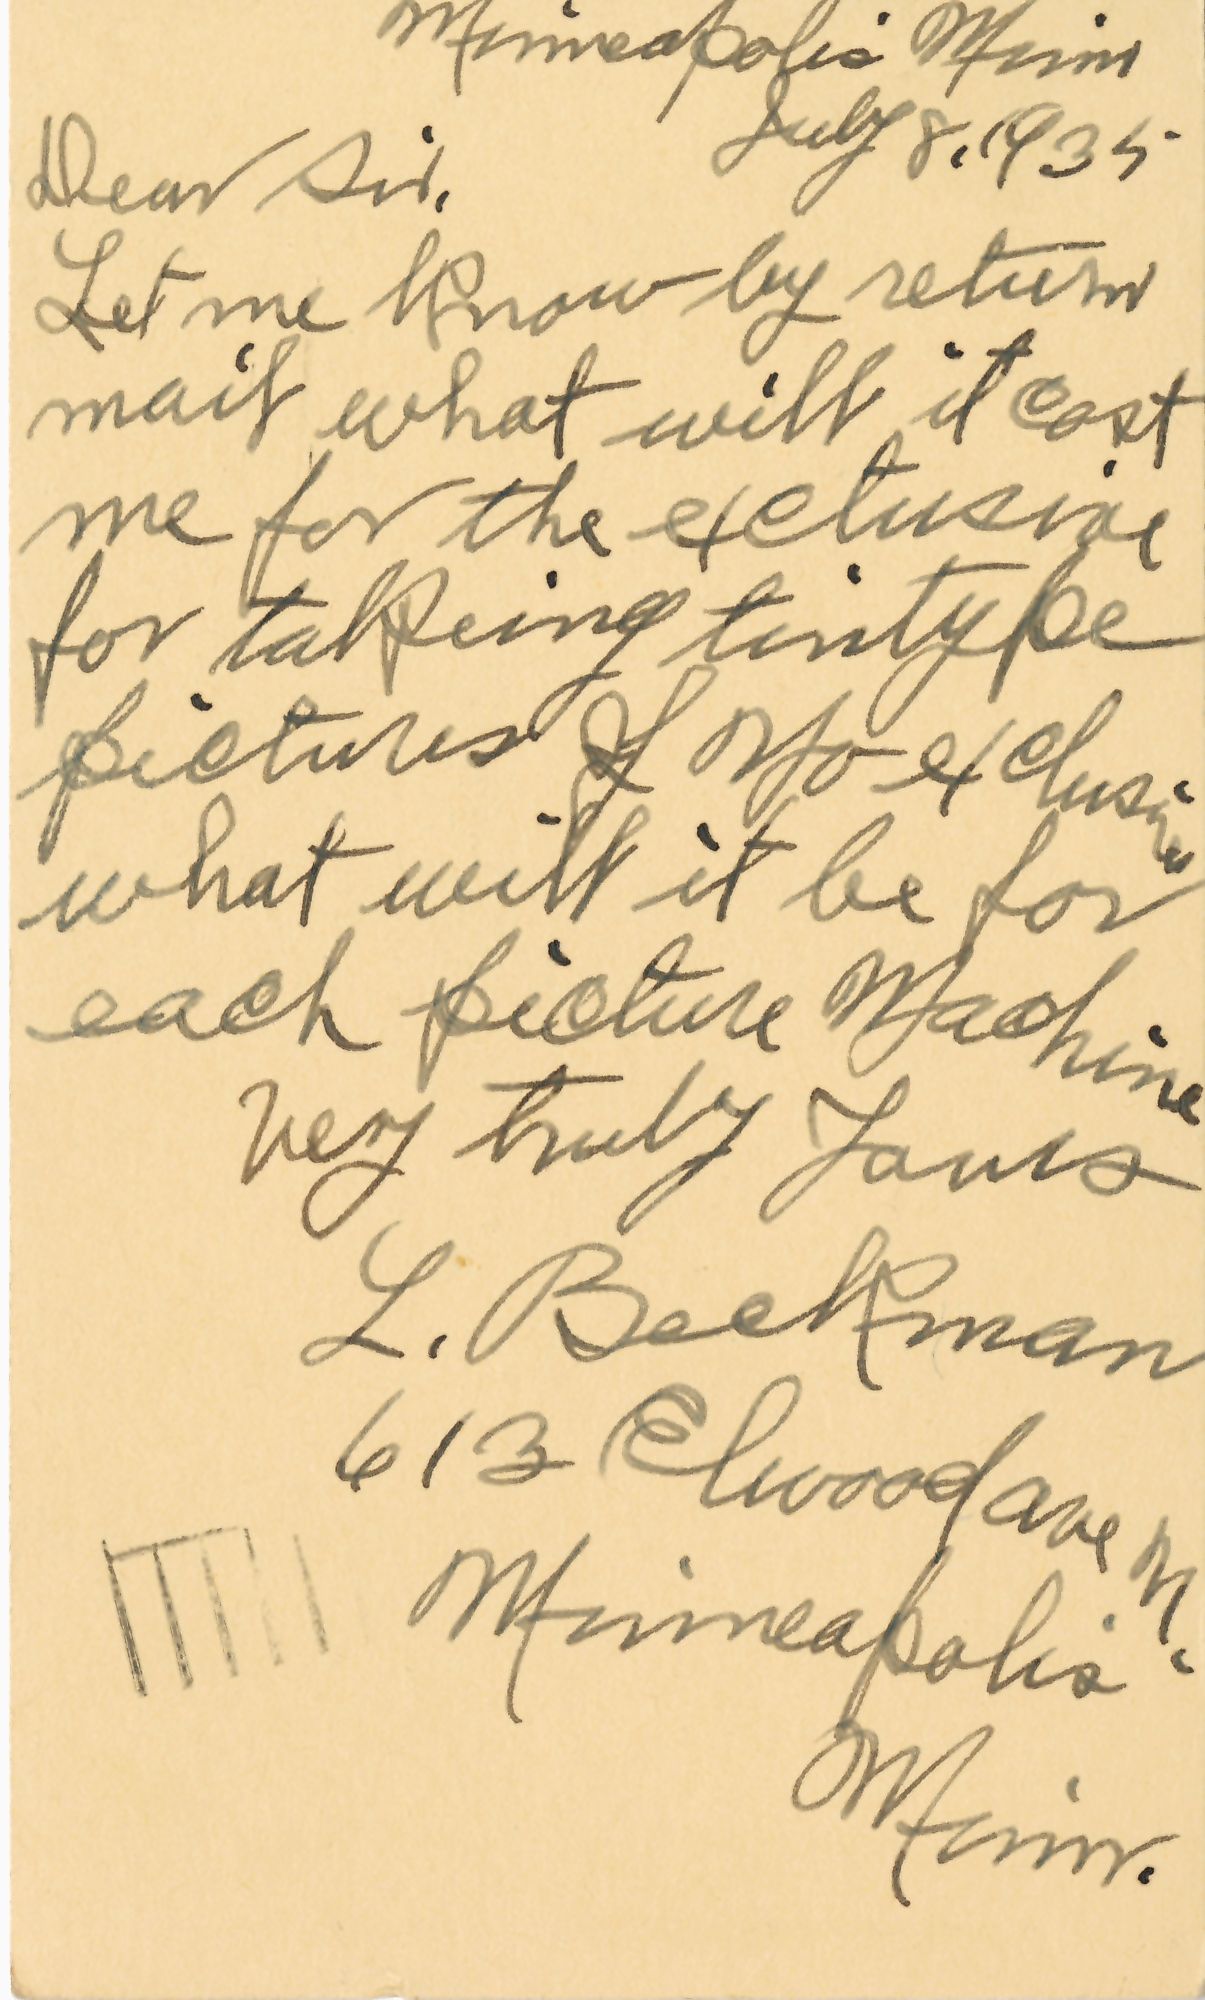 Minneapolis Minn
July 8, 1935
Dear Sir.
Let me know by return
mail what will it cost
me for the exclusive
for takeing tintype
pictures If No exclusive
what will it be for
each picture Machine
Very truly Yours
L. Beckman
613 Elwood ave N.
Minneapolis
Minn.